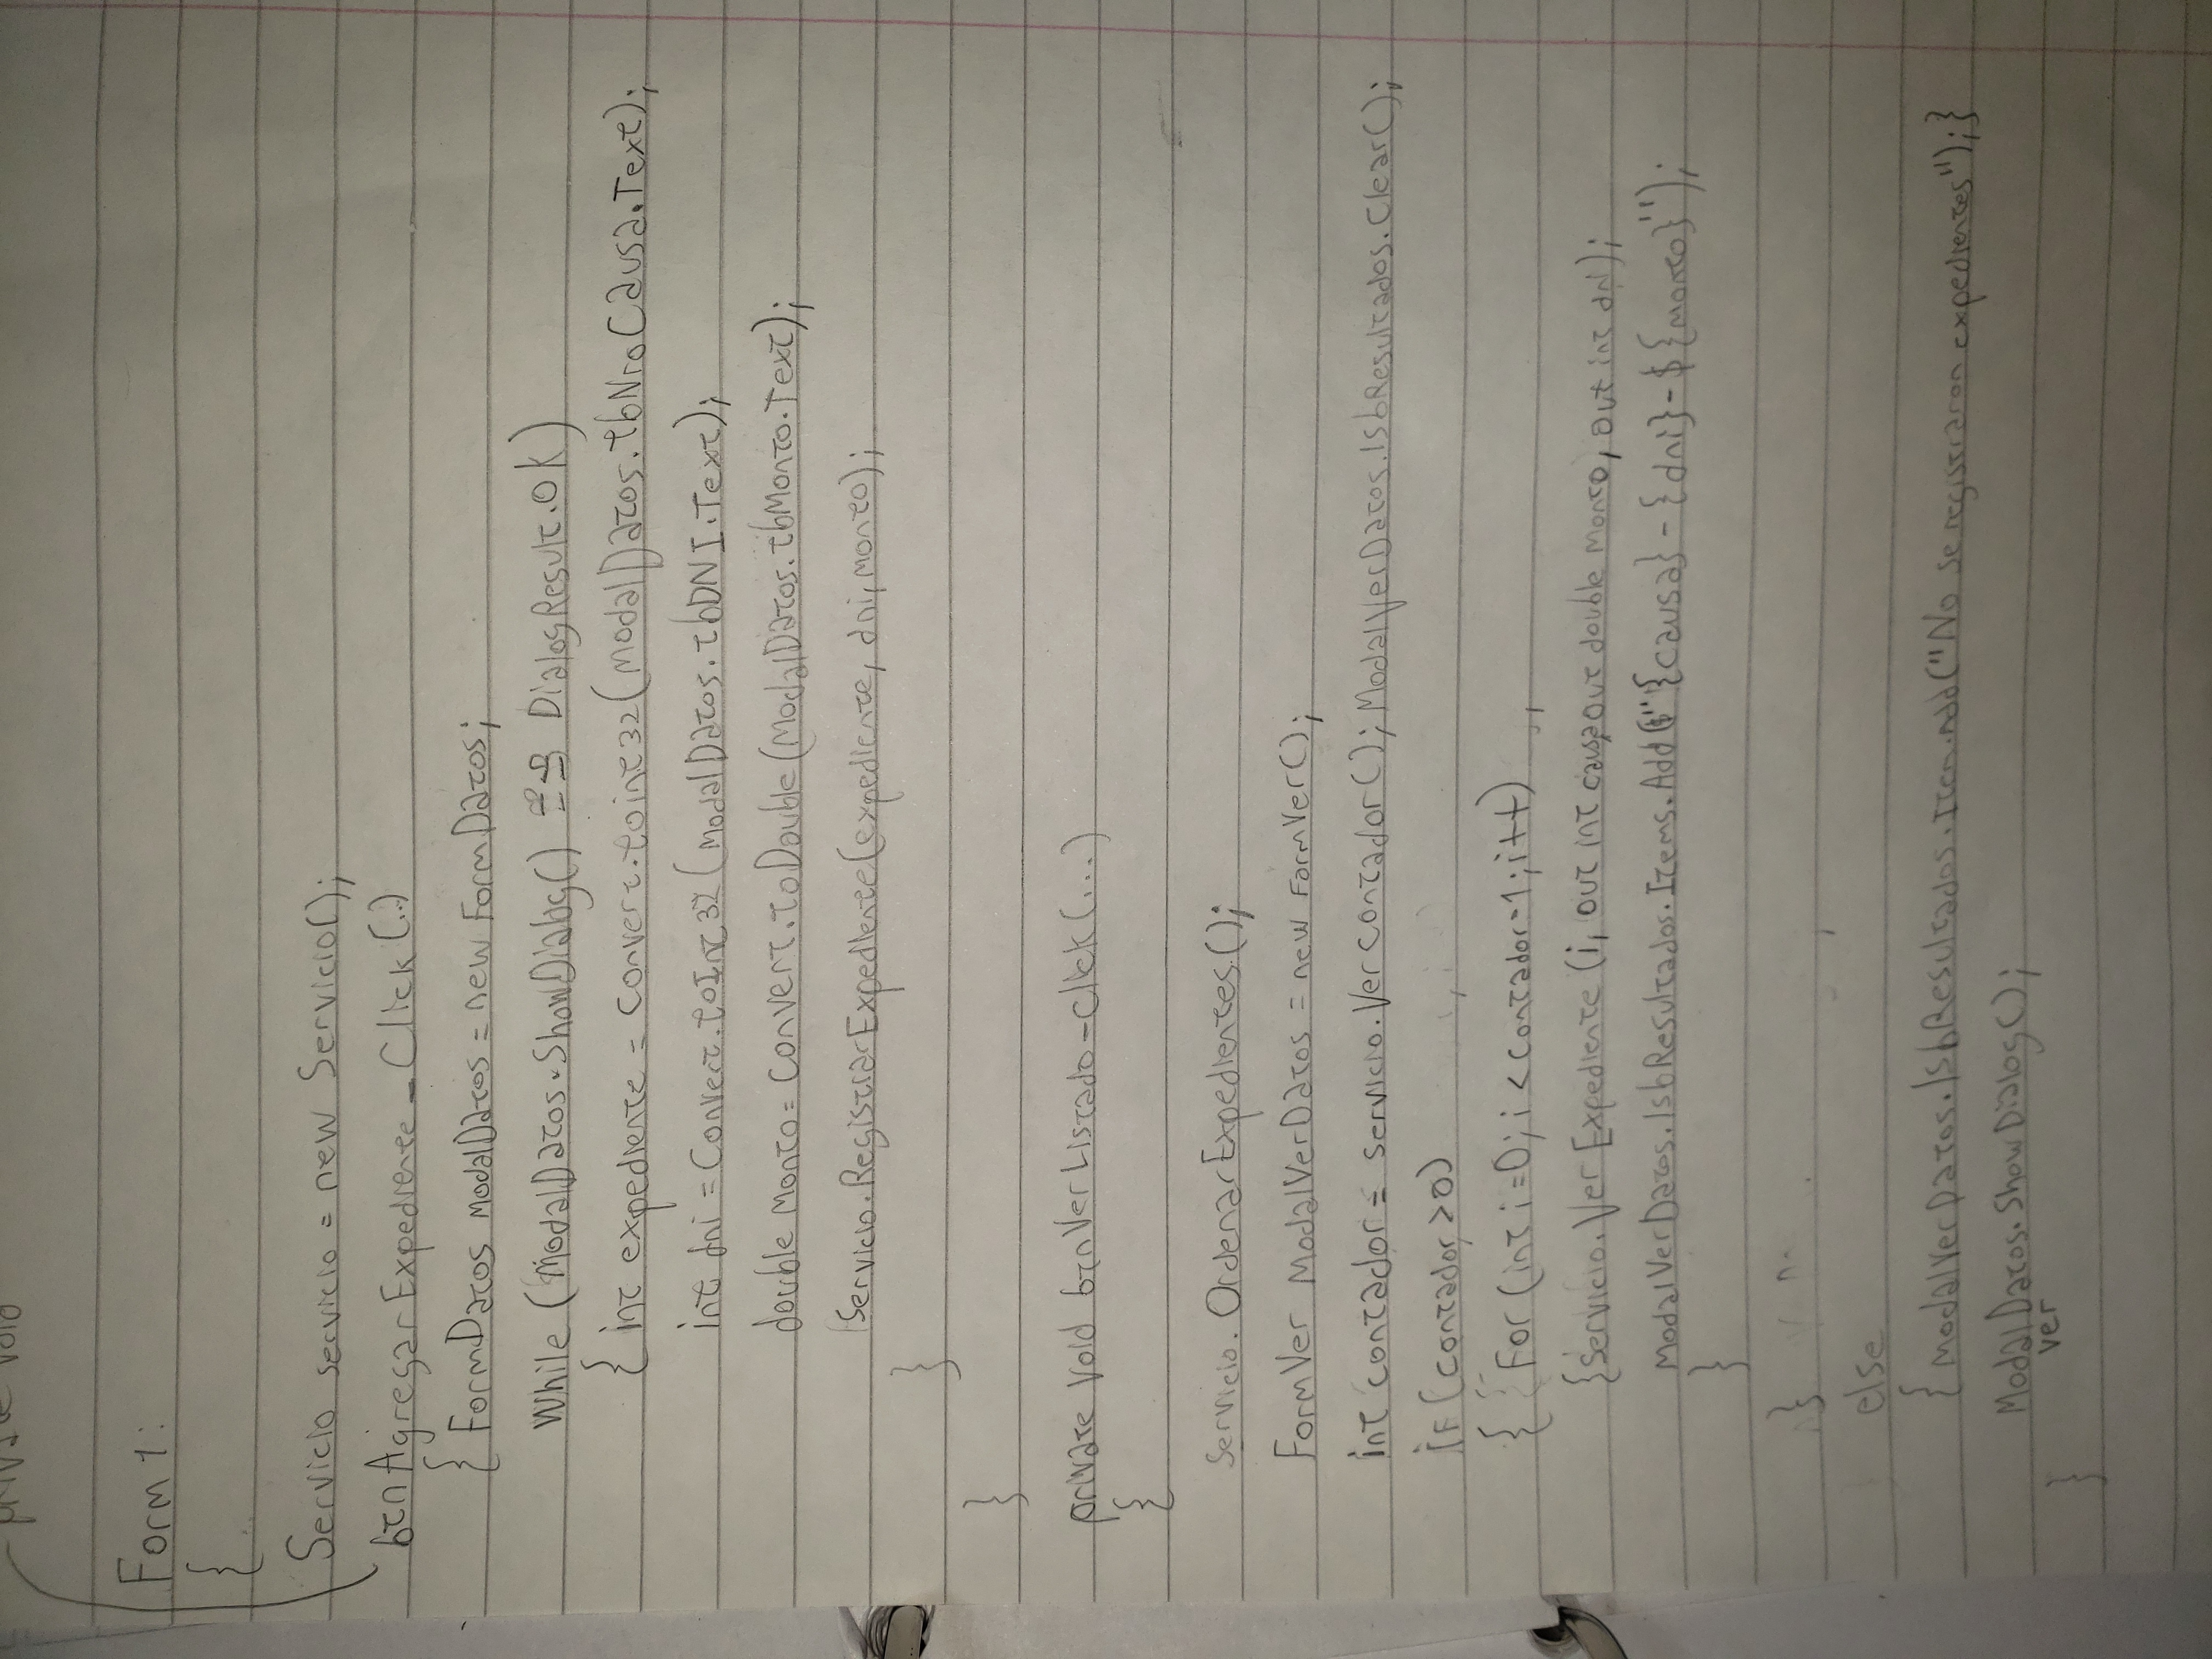 private void
Form 1:
{
Servicio servicio = new Servicio();
btnAgregarExpediente_Click(..)
{ FormDatos modalDatos = new FormDatos;
while (modalDatos.ShowDialog() == DialogResult.OK)
{ int expediente = convert.toint32(modalDatos.tbNroCausa.Text);
int dni = Convert.toInt32(modalDatos.tbDNI.Text);
double monto = convert.toDouble(modalDatos.tbMonto.Text);
Servicio.RegistrarExpediente(expediente, dni, monto);
}
}
private void btnVerListado_Click(...)
{
servicio.OrdenarExpedientes();
FormVer ModalVerDatos = new FormVer();
int contador = servicio.Ver contador(); ModalVerDatos.lsbResultados.Clear();
if (contador > 0)
{ For (int i=0; i < contador-1; i++)
{servicio.Ver Expediente (i, out int causa, out double monto, out int dni);
ModalVerDatos.lsbResultados.Items.Add($"{causa} - {dni} - ${monto}");
}
}
else
{ ModalVerDatos.lsbResultados.Item.Add("No se registraron expedientes");}
ModalDatos.ShowDialog();
ver
}